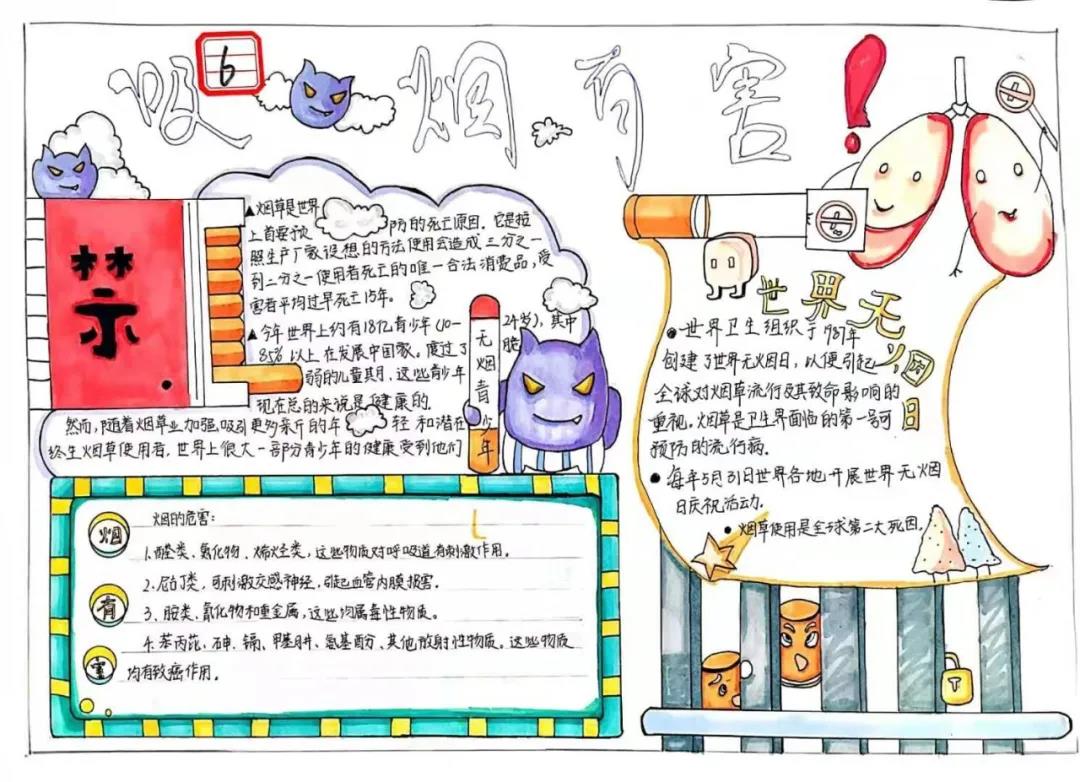 吸烟有害!
6
禁
▲烟草是世界
上首要预防的死亡原因。它是按
照生产厂家设想的方法使用会造成三分之一
到二分之一使用者死亡的唯一合法消费品,受
害者平均过早死亡15年。
▲今年世界上约有18亿青少年(10-24岁),其中
85%以上在发展中国家。度过了脆
弱的儿童其月,这些青少年
现在总的来说是健康的。
然而,随着烟草业加强吸引更多亲斤的年轻和潜在
终生烟草使用者,世界上很大一部分青少年的健康受到他们
无烟青少年
世界无烟日
世界卫生组织于1987年
创建了世界无烟日,以便引起
全球对烟草流行及其致命影响的
重视。烟草是卫生界面临的第一号可
预防的流行病。
每年5月31日世界各地开展世界无烟
日庆祝活动。
烟草使用是全球第二大死因。
烟有害
烟的危害:
1.醛类、氮化物、烯烃类,这些物质对呼吸道有刺激作用。
2.尼古丁类,可刺激交感神经,引起血管内膜损害。
3、胺类、氰化物和重金属,这些均属毒性物质。
4.苯丙芘、砷、镉、甲基肼、氨基酚、其他放射性物质。这些物质
均有致癌作用。